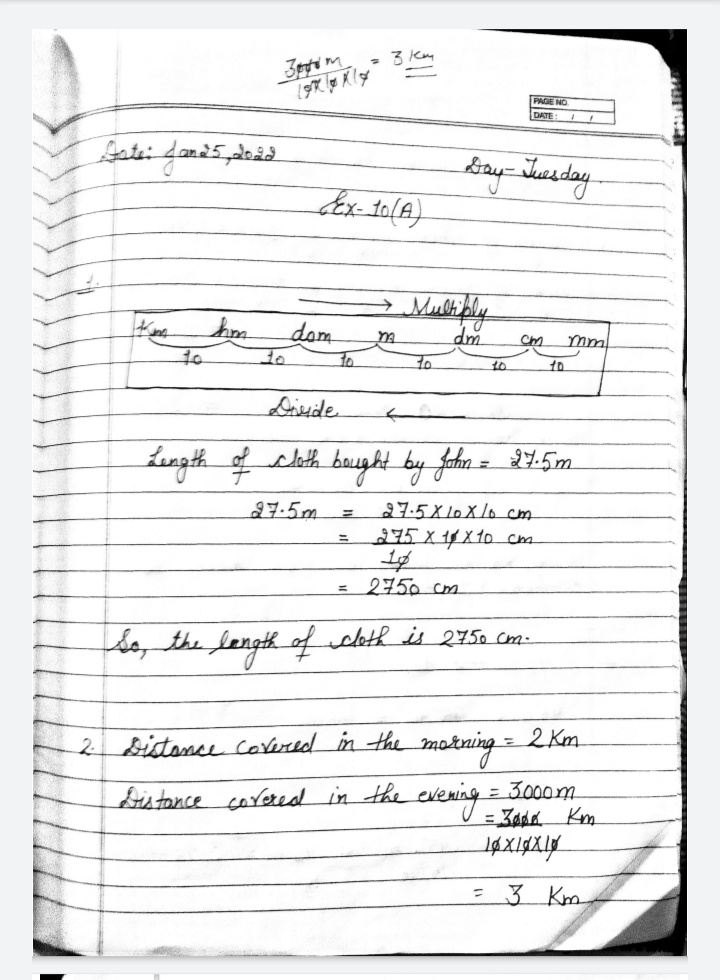 3000 m = 3 Km
10X10X10
PAGE NO.
DATE: / /
Date: Jan 25, 2022
Day - Tuesday.
Ex- 10(A)
1.
→ Multiply
Km hm dam m dm cm mm
10 10 10 10 10 10
Divide ←
Length of cloth bought by John = 27.5m
27.5m = 27.5 X 10 X 10 cm
= 275 X 10 X 10 cm
10
= 2750 cm
So, the length of cloth is 2750 cm.
2. Distance covered in the morning = 2 Km
Distance covered in the evening = 3000m
= 3000 Km
10X10X10
= 3 Km